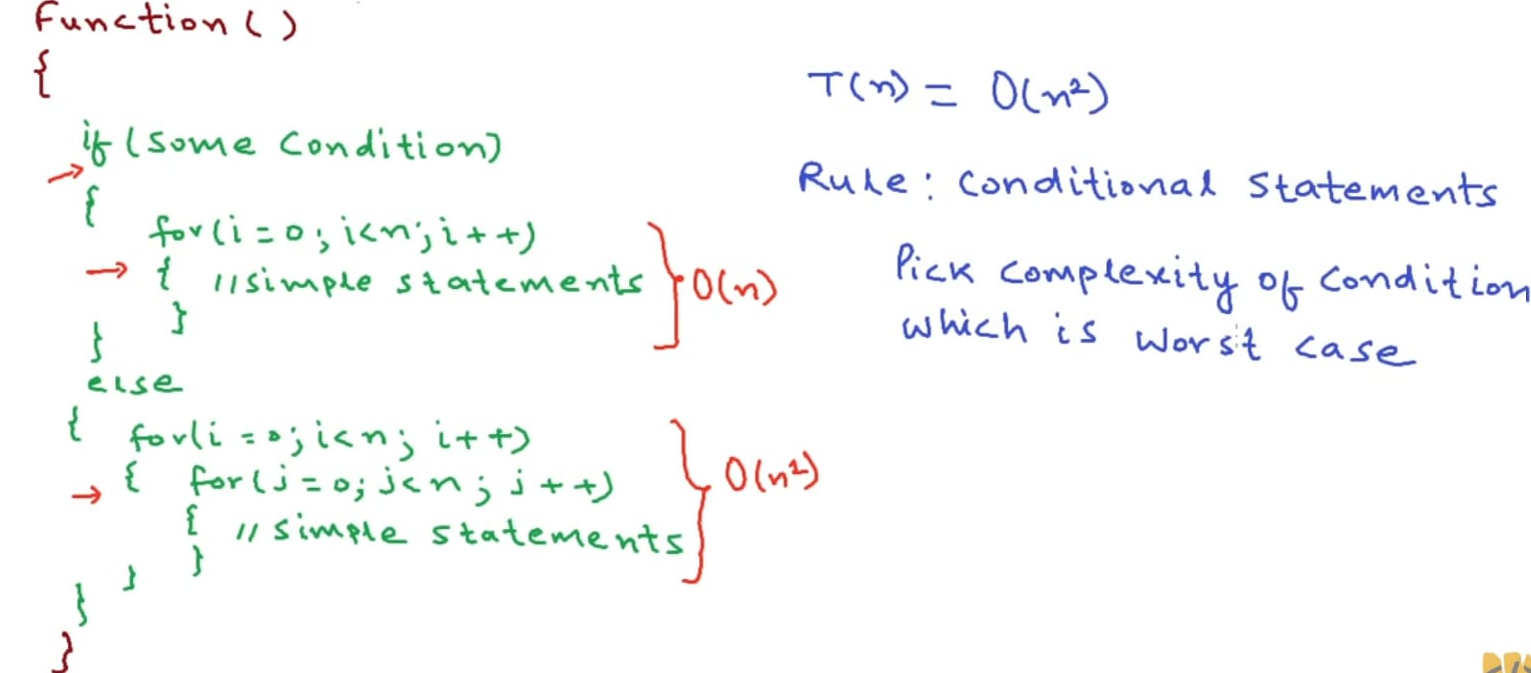 Function()
{
if (some condition)
{
for(i=0; i<n; i++)
{ //simple statements
}
}
else
{ for(i=0; i<n; i++)
{ for(j=0; j<n; j++)
{ // simple statements
}
}
}
}
O(n)
O(n²)
T(n) = O(n²)
Rule: Conditional Statements
Pick complexity of condition
which is worst case